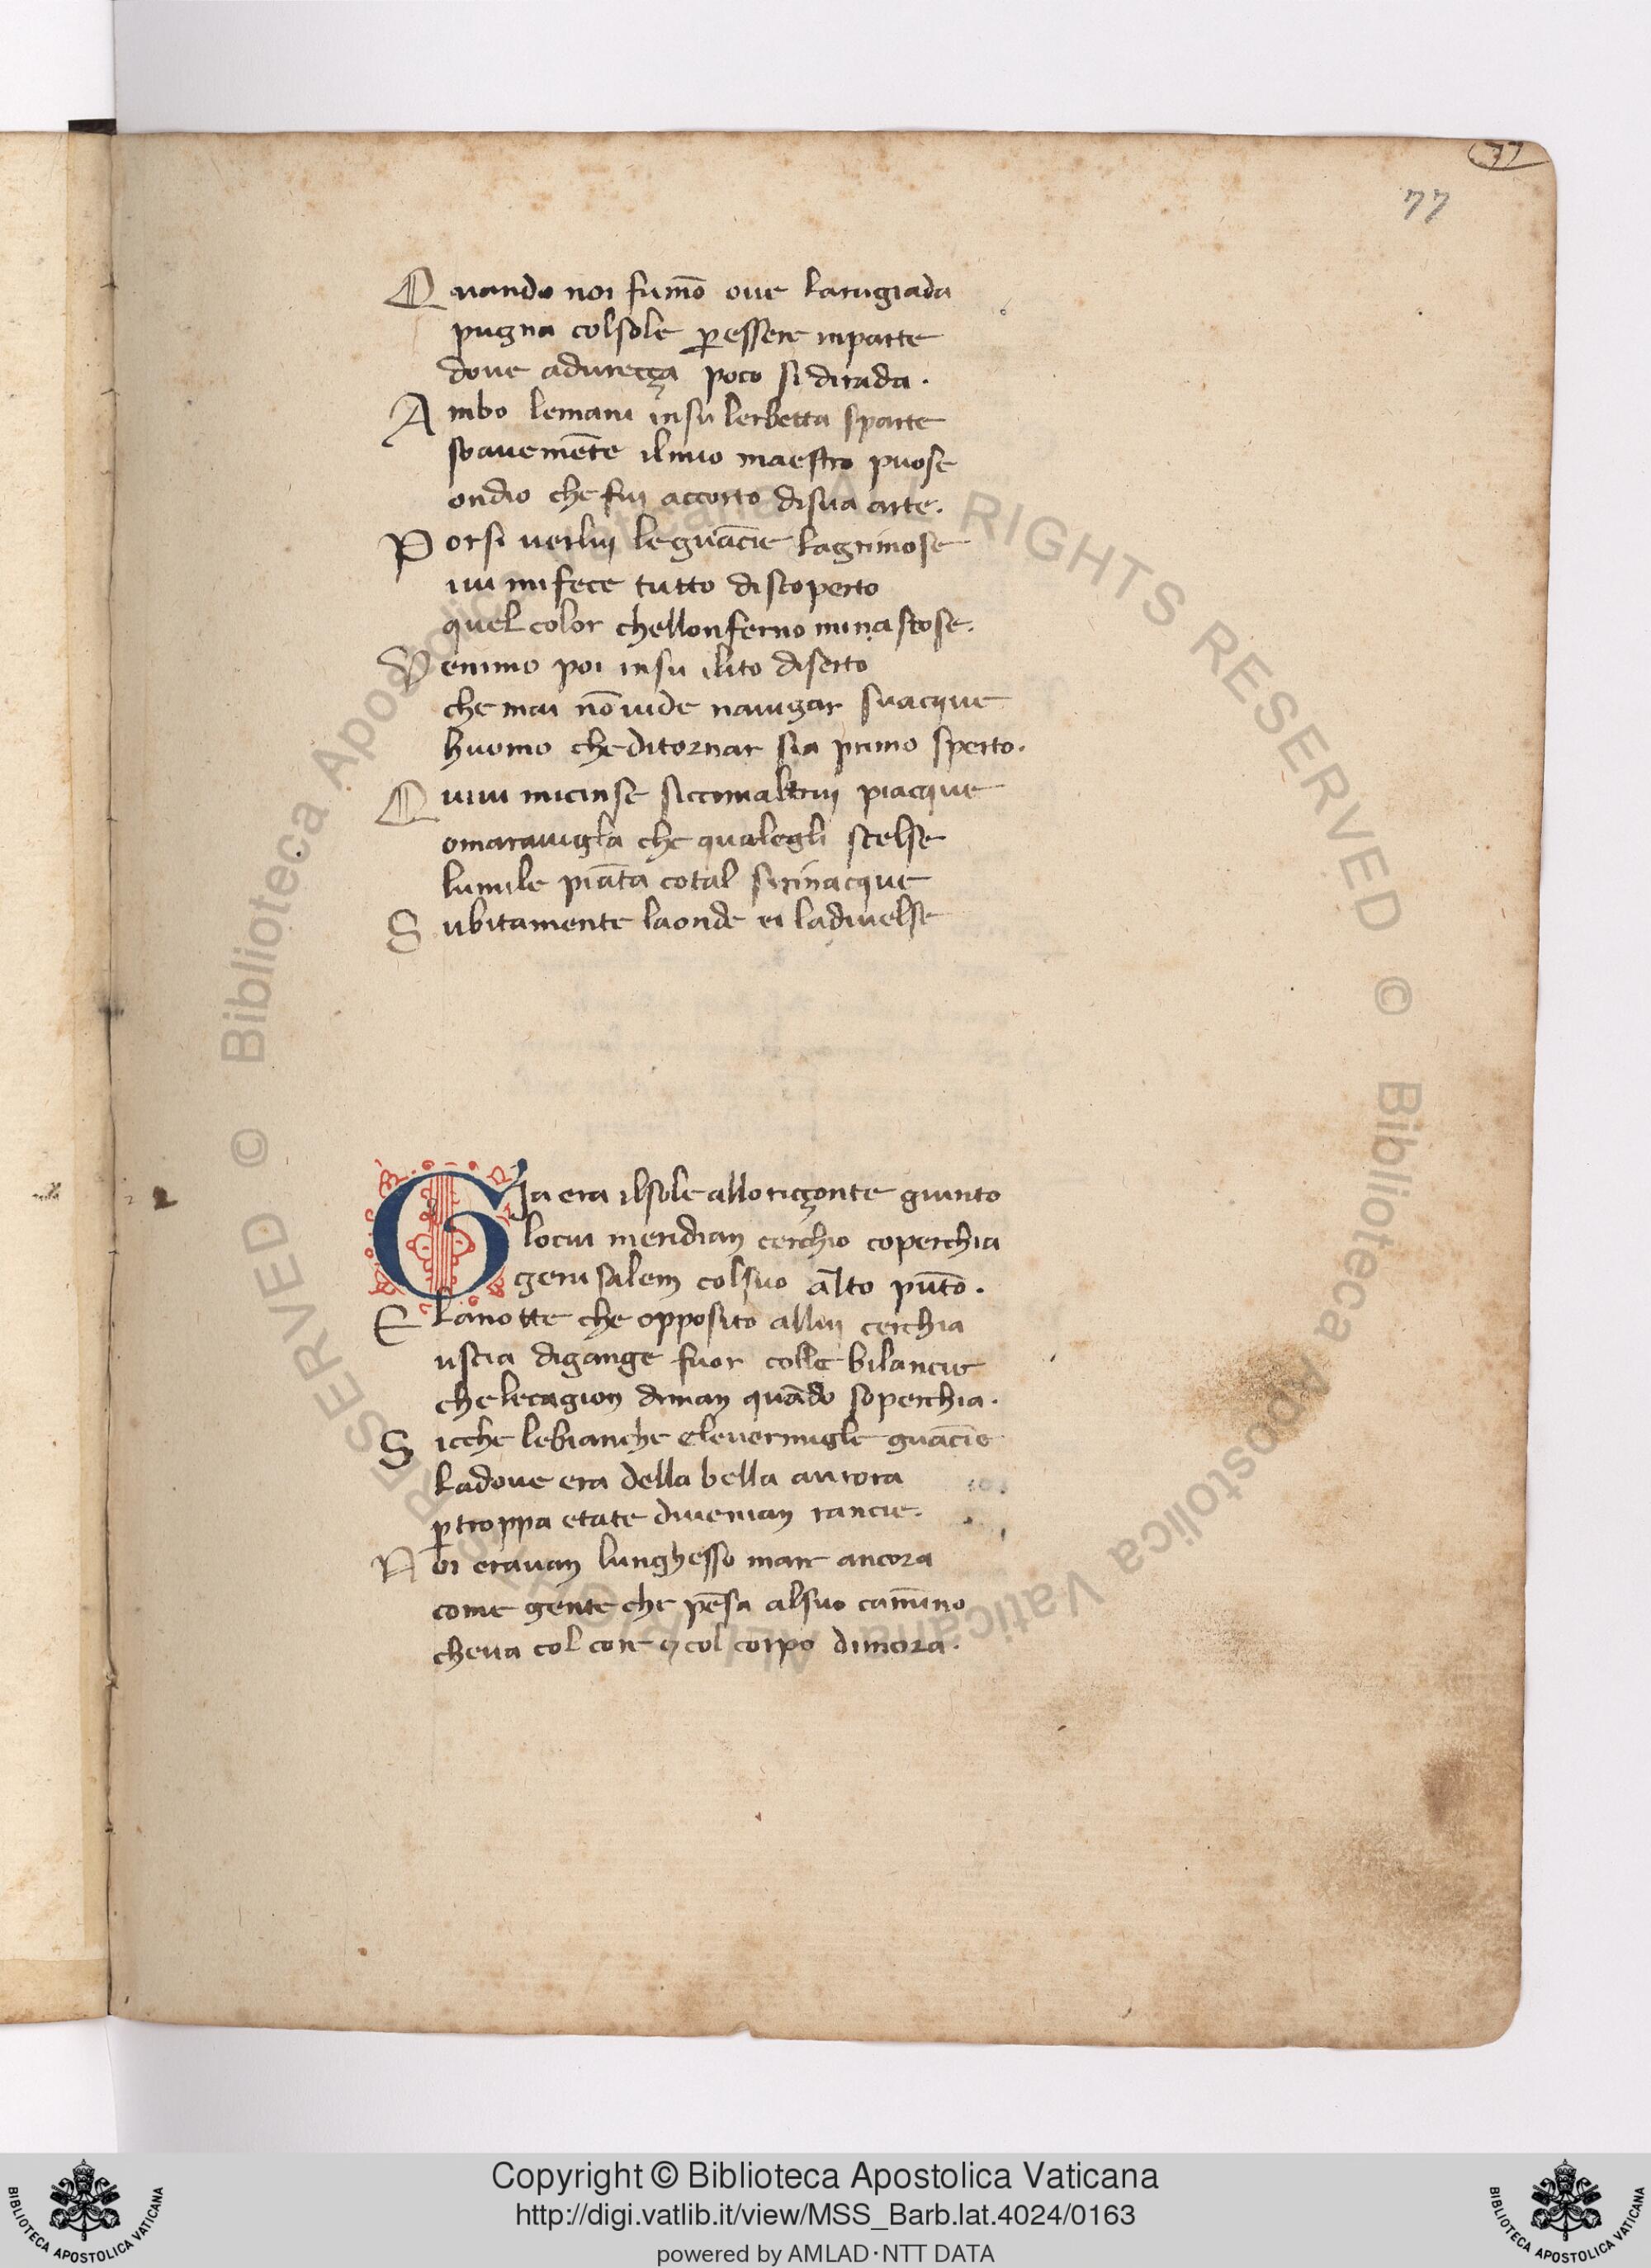 77
77
Quando noi fumo͞ oue larugiada
pugna colsole ꝑessere inparte
doue adureçça poco si dirada.
Ambo lemani insu lerbetta sparte
soauemēte ilmio maestro puose
ondio che fui accorto disua arte.
Porsi uerlui leguācie lagrimose
iui mifece tutto discoperto
quel color chellonferno minascose.
Venimo poi insu ilito diserto
che mai nō uide nauigar suacque
huomo cheditornar sia primo sperto.
Quiui micinse siccomaltrui piacque
omarauigla che qualegli scelse
lumile piāta cotal sirinacque
Subitamente laonde ei ladiuelse
2
Gia era ilsole alloriçonte giunto
locui meridian cerchio coperchia
gerusalem colsuo alto pūto.
E lanotte che opposito allui cerchia
uscia digange fuor colle bilancie
chelecagion diman quādo soperchia.
Sicche lebianche eleuermigle guācie
ladoue era della bella aurora
ꝑtroppa etate diuenian rancie.
Noi erauan lunghesso mare ancora
come gente che pēsa alsuo camīno
cheua col core ⁊ col corpo dimora.
© Biblioteca Apostolica Vaticana ALL RIGHTS RESERVED © Biblioteca Apostolica Vaticana ALL RIGHTS RESERVED
Copyright © Biblioteca Apostolica Vaticana
http://digi.vatlib.it/view/MSS_Barb.lat.4024/0163
powered by AMLAD·NTT DATA
BIBLIOTECA APOSTOLICA VATICANA
BIBLIOTECA APOSTOLICA VATICANA